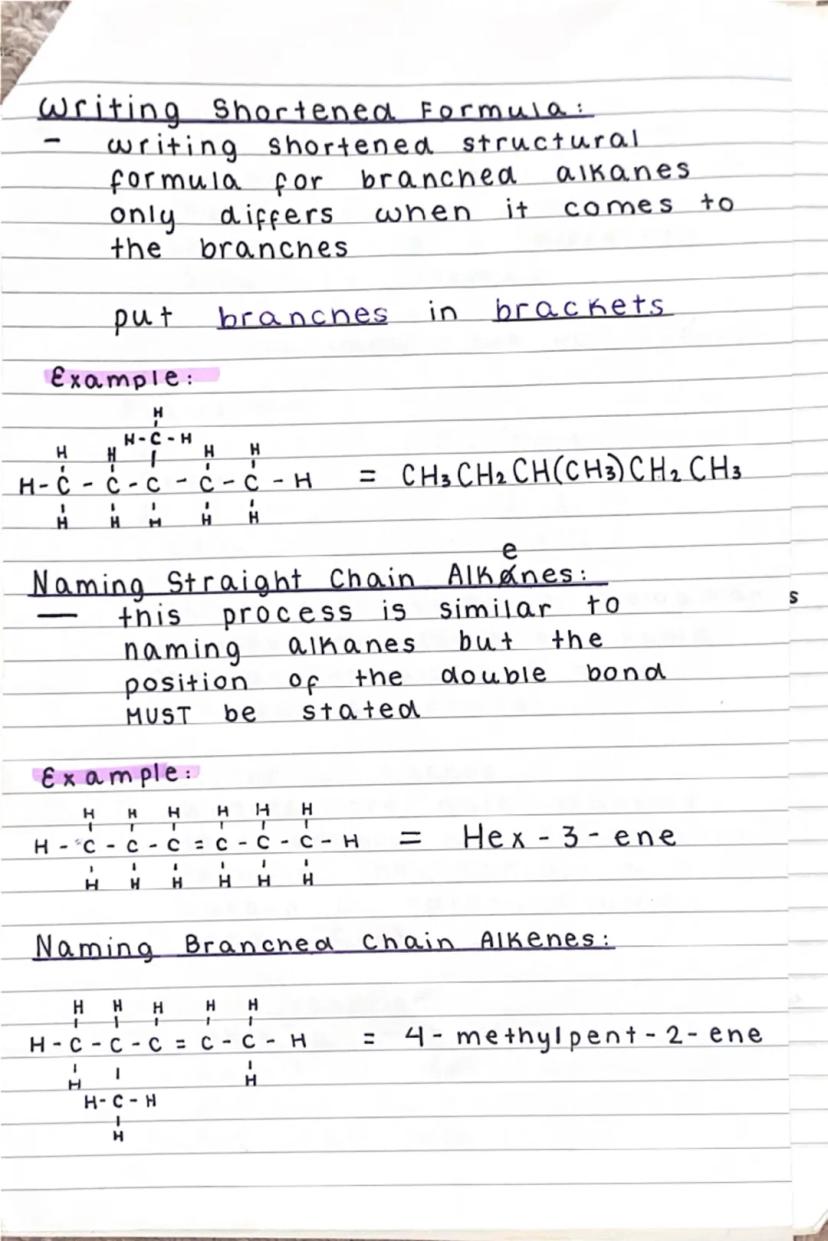 Writing Shortened Formula:
- writing shortened structural
formula for branched alkanes
only differs when it comes to
the branches
put branches in brackets
Example:
H
H H H-C-H H H
H-C-C-C-C-C-H = CH3CH2CH(CH3)CH2CH3
H H H H H
e
Naming Straight Chain Alkanes:
s
- this process is similar to
naming alkanes but the
position of the double bond
MUST be stated
Example:
H H H H H H
H-C-C-C=C-C-C-H = Hex-3-ene
H H H H H H
Naming Branched Chain Alkenes:
H H H H H
H-C-C-C=C-C-H = 4-methylpent-2-ene
H H
H-C-H
H